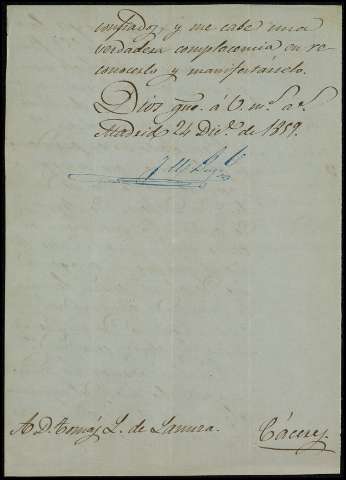 confiados, y me cabe una
verdadera complacencia en re
conocerlo y manifestárselo.
Dios gue. á V. ms. as.
Madrid 24 Dice. de 1859.
A D. Tomás L. de Lamera.
Cáceres.